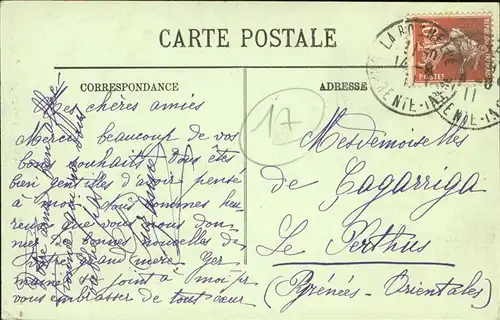 CARTE POSTALE
CORRESPONDANCE
ADRESSE
POSTES
17
Mes chères amies
Merci beaucoup de vos
bons souhaits. Vous êtes
bien gentilles d'avoir pensé
à moi. Nous sommes heu
reux que vous nous don
niez de bonnes nouvelles de
votre grand'mère. Ger
maine se joint à moi pr
vous embrasser de tout cœur
Mesdemoiselles
de Çagarriga
Le Perthus
(Pyrénées-Orientales)